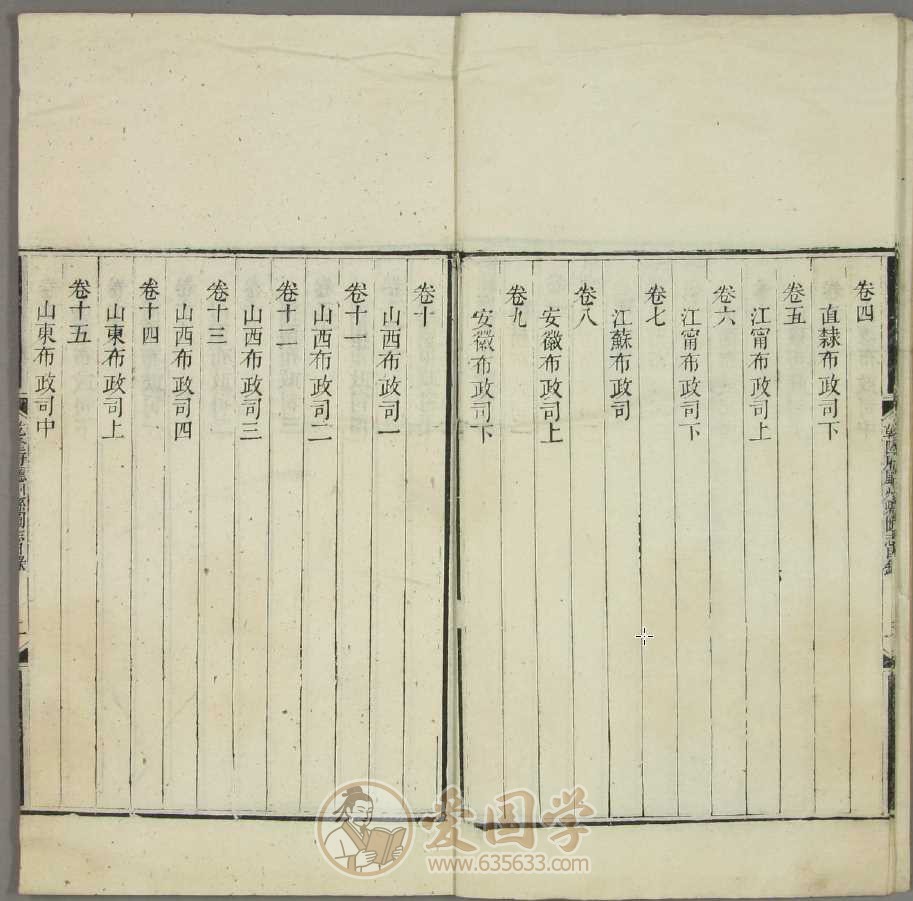 卷四
直隸布政司下
卷五
江甯布政司上
卷六
江甯布政司下
卷七
江蘇布政司
卷八
安徽布政司上
卷九
安徽布政司下
卷十
山西布政司一
卷十一
山西布政司二
卷十二
山西布政司三
卷十三
山西布政司四
卷十四
山東布政司上
卷十五
山東布政司中
爱国学
www.635633.com